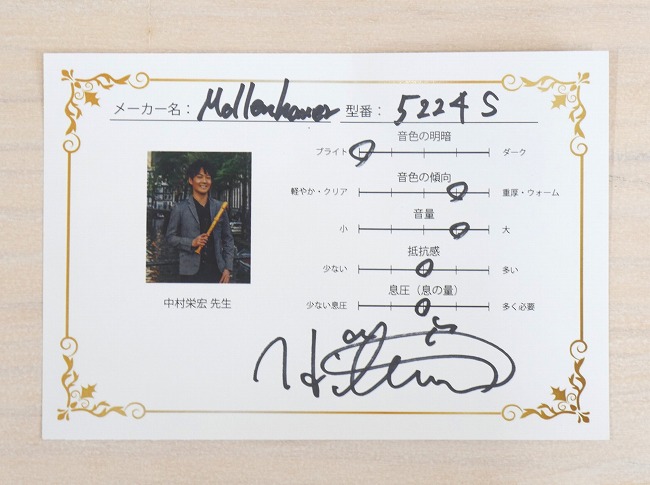 メーカー名：Mollenhauer 型番：5224 S
音色の明暗
ブライト ダーク
音色の傾向
軽やか・クリア 重厚・ウォーム
音量
小 大
抵抗感
少ない 多い
息圧（息の量）
少ない息圧 多く必要
中村栄宏 先生